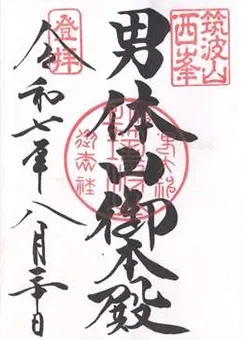 筑波山
西峯
男体山御本殿
登拝
令和七年八月三十日